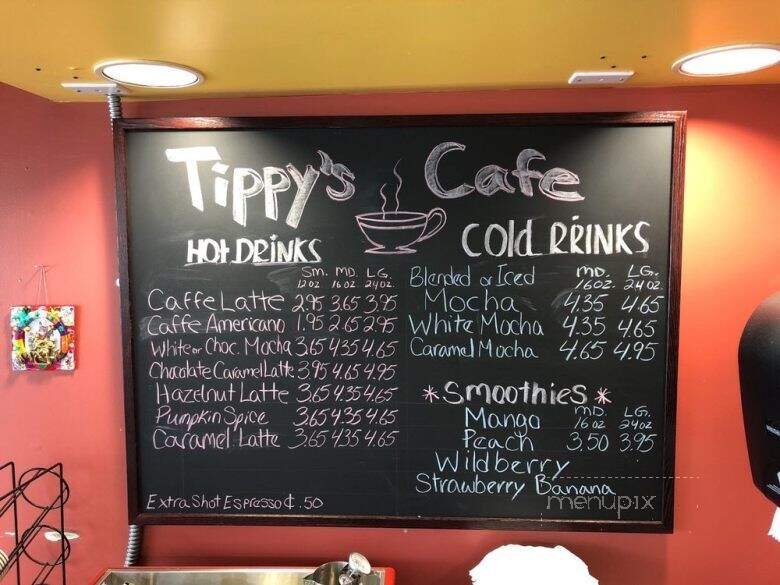 Tippy's Cafe
HOt DRiNKS
Sm. MD. LG.
12 oz 16 oz 24 oz.
Caffe Latte 2.95 3.65 3.95
Caffe Americano 1.95 2.65 2.95
White or Choc. Mocha 3.65 4.35 4.65
Chocolate Caramel Latte 3.95 4.65 4.95
Hazelnut Latte 3.65 4.35 4.65
Pumpkin Spice 3.65 4.35 4.65
Caramel Latte 3.65 4.35 4.65
Extra Shot Espresso ¢.50
COld DRiNKS
Blended or Iced MD. LG.
16oz. 24 oz.
Mocha 4.35 4.65
White Mocha 4.35 4.65
Caramel Mocha 4.65 4.95
* Smoothies *
Mango MD. LG.
16 oz 24oz
Peach 3.50 3.95
Wildberry
Strawberry Banana
menupix